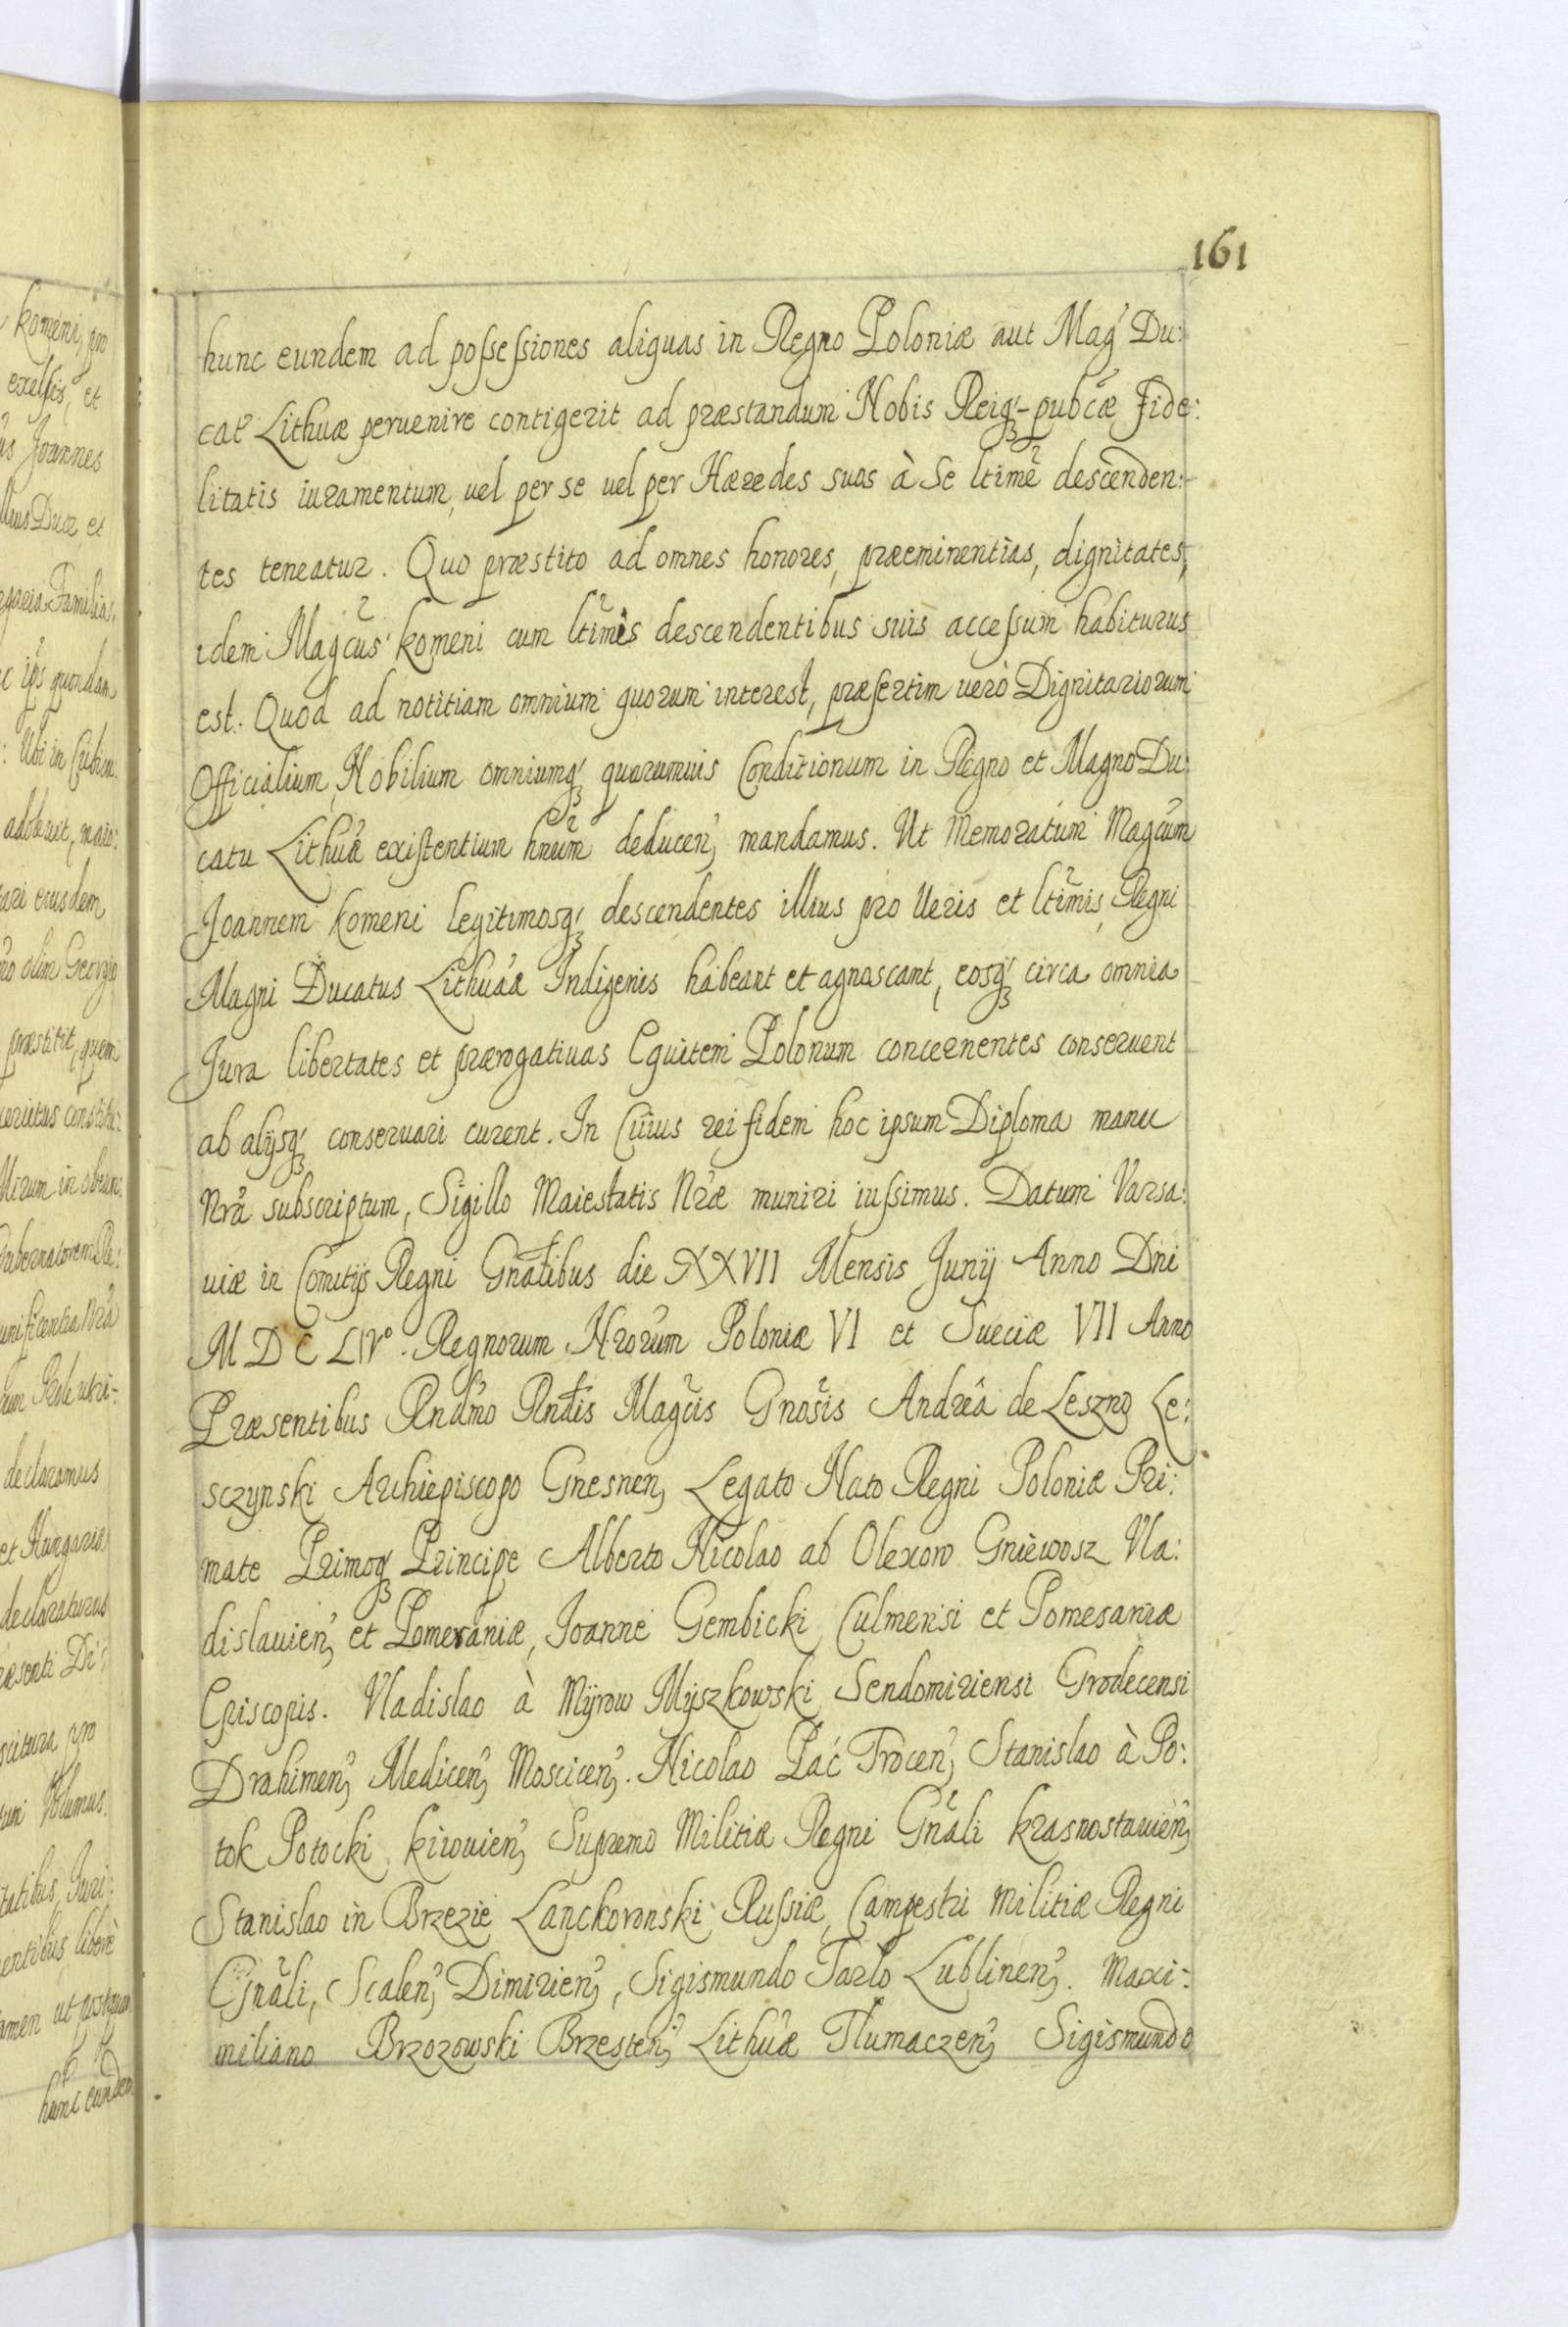 161
hunc eundem ad possessiones aliquas in Regno Poloniæ aut Mag' Du:
cat Lithuæ peruenire contigerit ad præstandum Nobis Reiq3-pubcæ Fide:
litatis iuramentum, uel per se uel per Hæredes suos à Se ltimè descenden:
tes teneatur. Quo præstito ad omnes honores, præeminentias, dignitates,
idem Magcus komeni cum ltimis descendentibus suis accessum habiturus
est. Quod ad notitiam omnium quorum interest, præsertim uerò Dignitariorum
Officialium, Nobilium omniumq3 quorumuis Conditionum in Regno et Magno Du:
catu Lithuæ existentium hnum deducen, mandamus. Ut Memoratum Magcum
Joannem komeni legitimosq3 descendentes illius pro Ueris et ltimis, Regni
Magni Ducatus Lithuaæ Indigenis habeant et agnoscant, eosq3 circa omnia
Jura libertates et prærogatiuas Equitem Polonum concernentes conseruent
ab alijsq3 conseruari curent. In Cuius rei fidem hoc ipsum Diploma manu
Nrâ subscriptum, Sigillo Maiestatis Nræ muniri iussimus. Datum Varsa:
uiæ in Comitijs Regni Gnalibus die XXVII Mensis Junij Anno Dni
M D C LIV°. Regnorum Nrorum Poloniæ VI et Sueciæ VII Anno
Præsentibus Rndmo Rndis Magcis Gnosis Andreâ de Leszno Le:
sczynski Archiepiscopo Gnesnen, Legato Nato Regni Poloniæ Pri:
mate Primoq3 Principe Alberto Nicolao ab Olexow Gniewosz Vla:
dislauien, et Pomeraniæ, Joanne Gembicki Culmensi et Pomesaniæ
Episcopis. Vladislao à Myrow Myszkowski Sendomiriensi Grodecensi
Drahimen, Medicen, Moscicen,. Nicolao Pać Trocen, Stanislao à Po:
tok Potocki kiiouien, Supremo Militiæ Regni Gnali krasnostauien,
Stanislao in Brzezie Lanckoronski Russiæ, Campestri Militiæ Regni
Gnali, Scalen, Dimirien, Sigismundo Tarlo Lublinen,. Maxi:
miliano Brzozowski Brzesten, Lithuæ Tlumaczen, Sigismundo